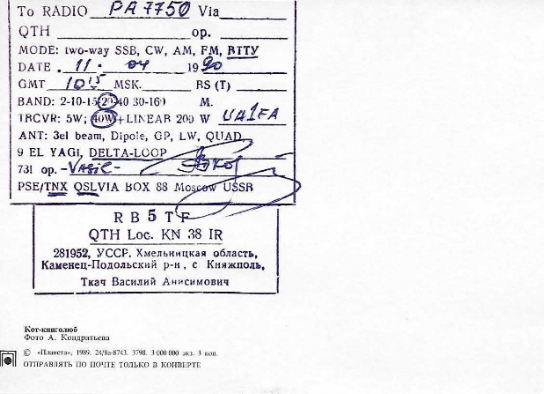 To RADIO PA7750 Via
QTH op.
MODE: two-way SSB, CW, AM, FM, RTTY
DATE 11. 04 1990
GMT 10 15 MSK. RS (T)
BAND: 2-10-15-20-40 30-160 M.
TRCVR: 5W; 40W+LINEAR 200 W UA1FA
ANT: 3el beam, Dipole, GP, LW, QUAD
9 EL YAGI, DELTA-LOOP
73! op. -Vasil-
PSE/TNX QSLVIA BOX 88 Moscow USSR
RB5TF
QTH Loc. KN 38 IR
281952, УССР. Хмельницкая область,
Каменец-Подольский р-н, с Княжполь,
Ткач Василий Анисимович
Кот-книголюб
Фото А. Кондратьева
© «Планета», 1989. 3798. 3 000 000 экз. 3 коп.
ОТПРАВЛЯТЬ ПО ПОЧТЕ ТОЛЬКО В КОНВЕРТЕ